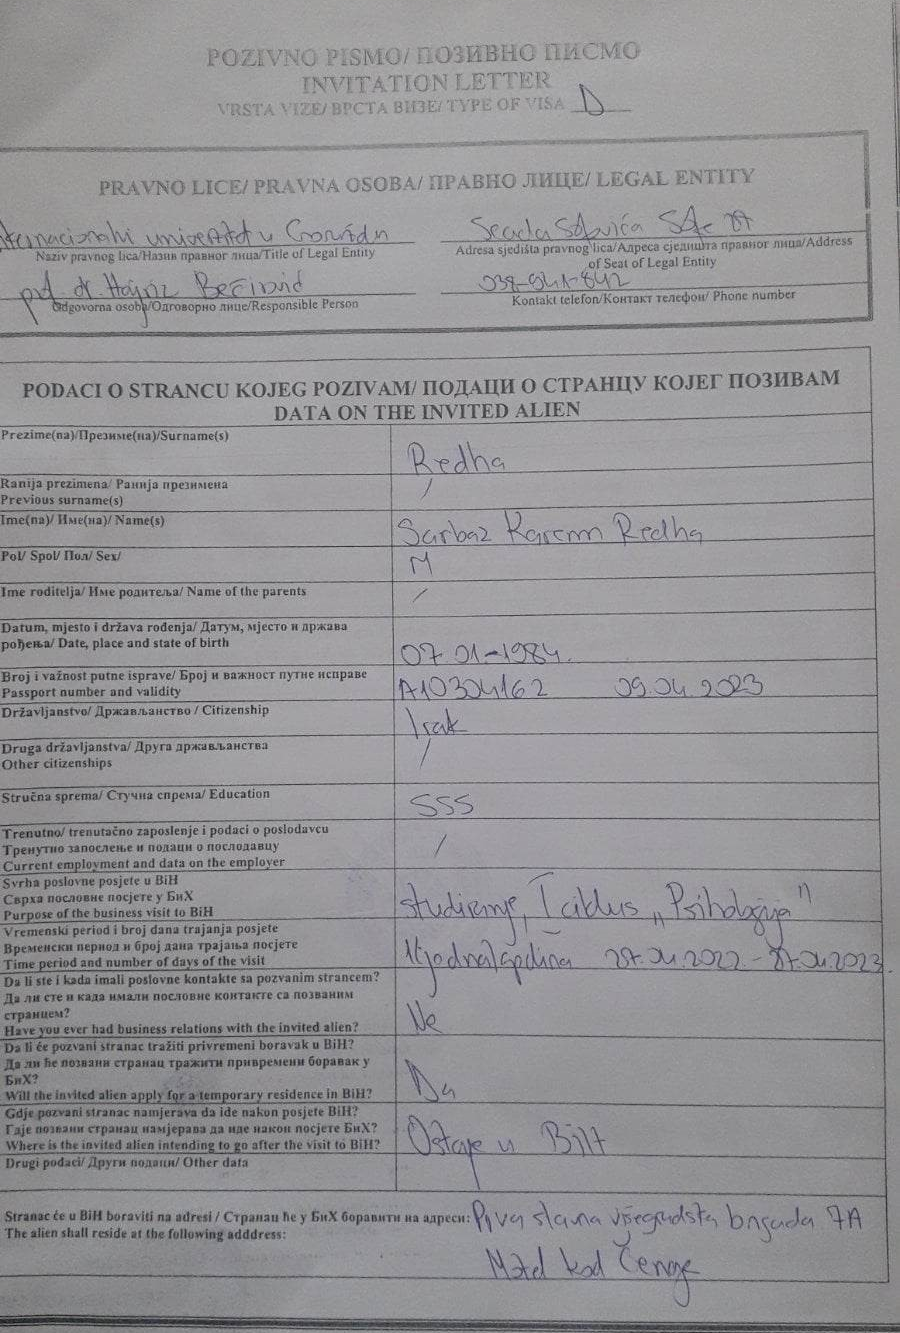 POZIVNO PISMO/ ПОЗИВНО ПИСМО
INVITATION LETTER
VRSTA VIZE/ ВРСТА ВИЗЕ/ TYPE OF VISA D
PRAVNO LICE/ PRAVNA OSOBA/ ПРАВНО ЛИЦЕ/ LEGAL ENTITY
ternacionalni univerzitet u Goraždu
Naziv pravnog lica/Назив правног лица/Title of Legal Entity
prof. dr. Bećirović
Odgovorna osoba/Одговорно лице/Responsible Person
Seada
Adresa sjedišta pravnog lica/Адреса сједишта правног лица/Address
of Seat of Legal Entity
038-941-842
Kontakt telefon/Контакт телефон/ Phone number
PODACI O STRANCU KOJEG POZIVAM/ ПОДАЦИ О СТРАНЦУ КОЈЕГ ПОЗИВАМ
DATA ON THE INVITED ALIEN
Prezime(na)/Презиме(на)/Surname(s)
Redha
Ranija prezimena/ Ранија презимена
Previous surname(s)
/
Ime(na)/ Име(на)/ Name(s)
Sarbaz Karem Redha
Pol/ Spol/ Пол/ Sex/
M
Ime roditelja/ Име родитеља/ Name of the parents
/
Datum, mjesto i država rođenja/ Датум, мјесто и држава
рођења/ Date, place and state of birth
07 01-1984.
Broj i važnost putne isprave/ Број и важност путне исправе
Passport number and validity
A10304162 09.04.2023
Državljanstvo/ Држављанство / Citizenship
Irak
Druga državljanstva/ Друга држављанства
Other citizenships
/
Stručna sprema/ Стучна спрема/ Education
SSS
Trenutno/ trenutačno zaposlenje i podaci o poslodavcu
Тренутно запослење и подаци о послодавцу
Current employment and data on the employer
/
Svrha poslovne posjete u BiH
Сврха пословне посјете у БиХ
Purpose of the business visit to BiH
studiranje, I ciklus „Psihologija"
Vremenski period i broj dana trajanja posjete
Временски период и број дана трајања посјете
Time period and number of days of the visit
1(jedna)godina 27.04.2022.-27.04.2023.
Da li ste i kada imali poslovne kontakte sa pozvanim strancem?
Да ли сте и када имали пословне контакте са позваним
странцем?
Have you ever had business relations with the invited alien?
Ne
Da li će pozvani stranac tražiti privremeni boravak u BiH?
Да ли ће позвани странац тражити привремени боравак у
БиХ?
Will the invited alien apply for a temporary residence in BiH?
Da
Gdje pozvani stranac namjerava da ide nakon posjete BiH?
Гдје позвани странац намјерава да иде након посјете БиХ?
Where is the invited alien intending to go after the visit to BiH?
Ostaje u BiH
Drugi podaci/ Други подаци/ Other data
Stranac će u BiH boraviti na adresi / Странац ће у БиХ боравити на адреси: Prva slavna višegradska brigada 7A
The alien shall reside at the following adddress:
Motel kod Čenge